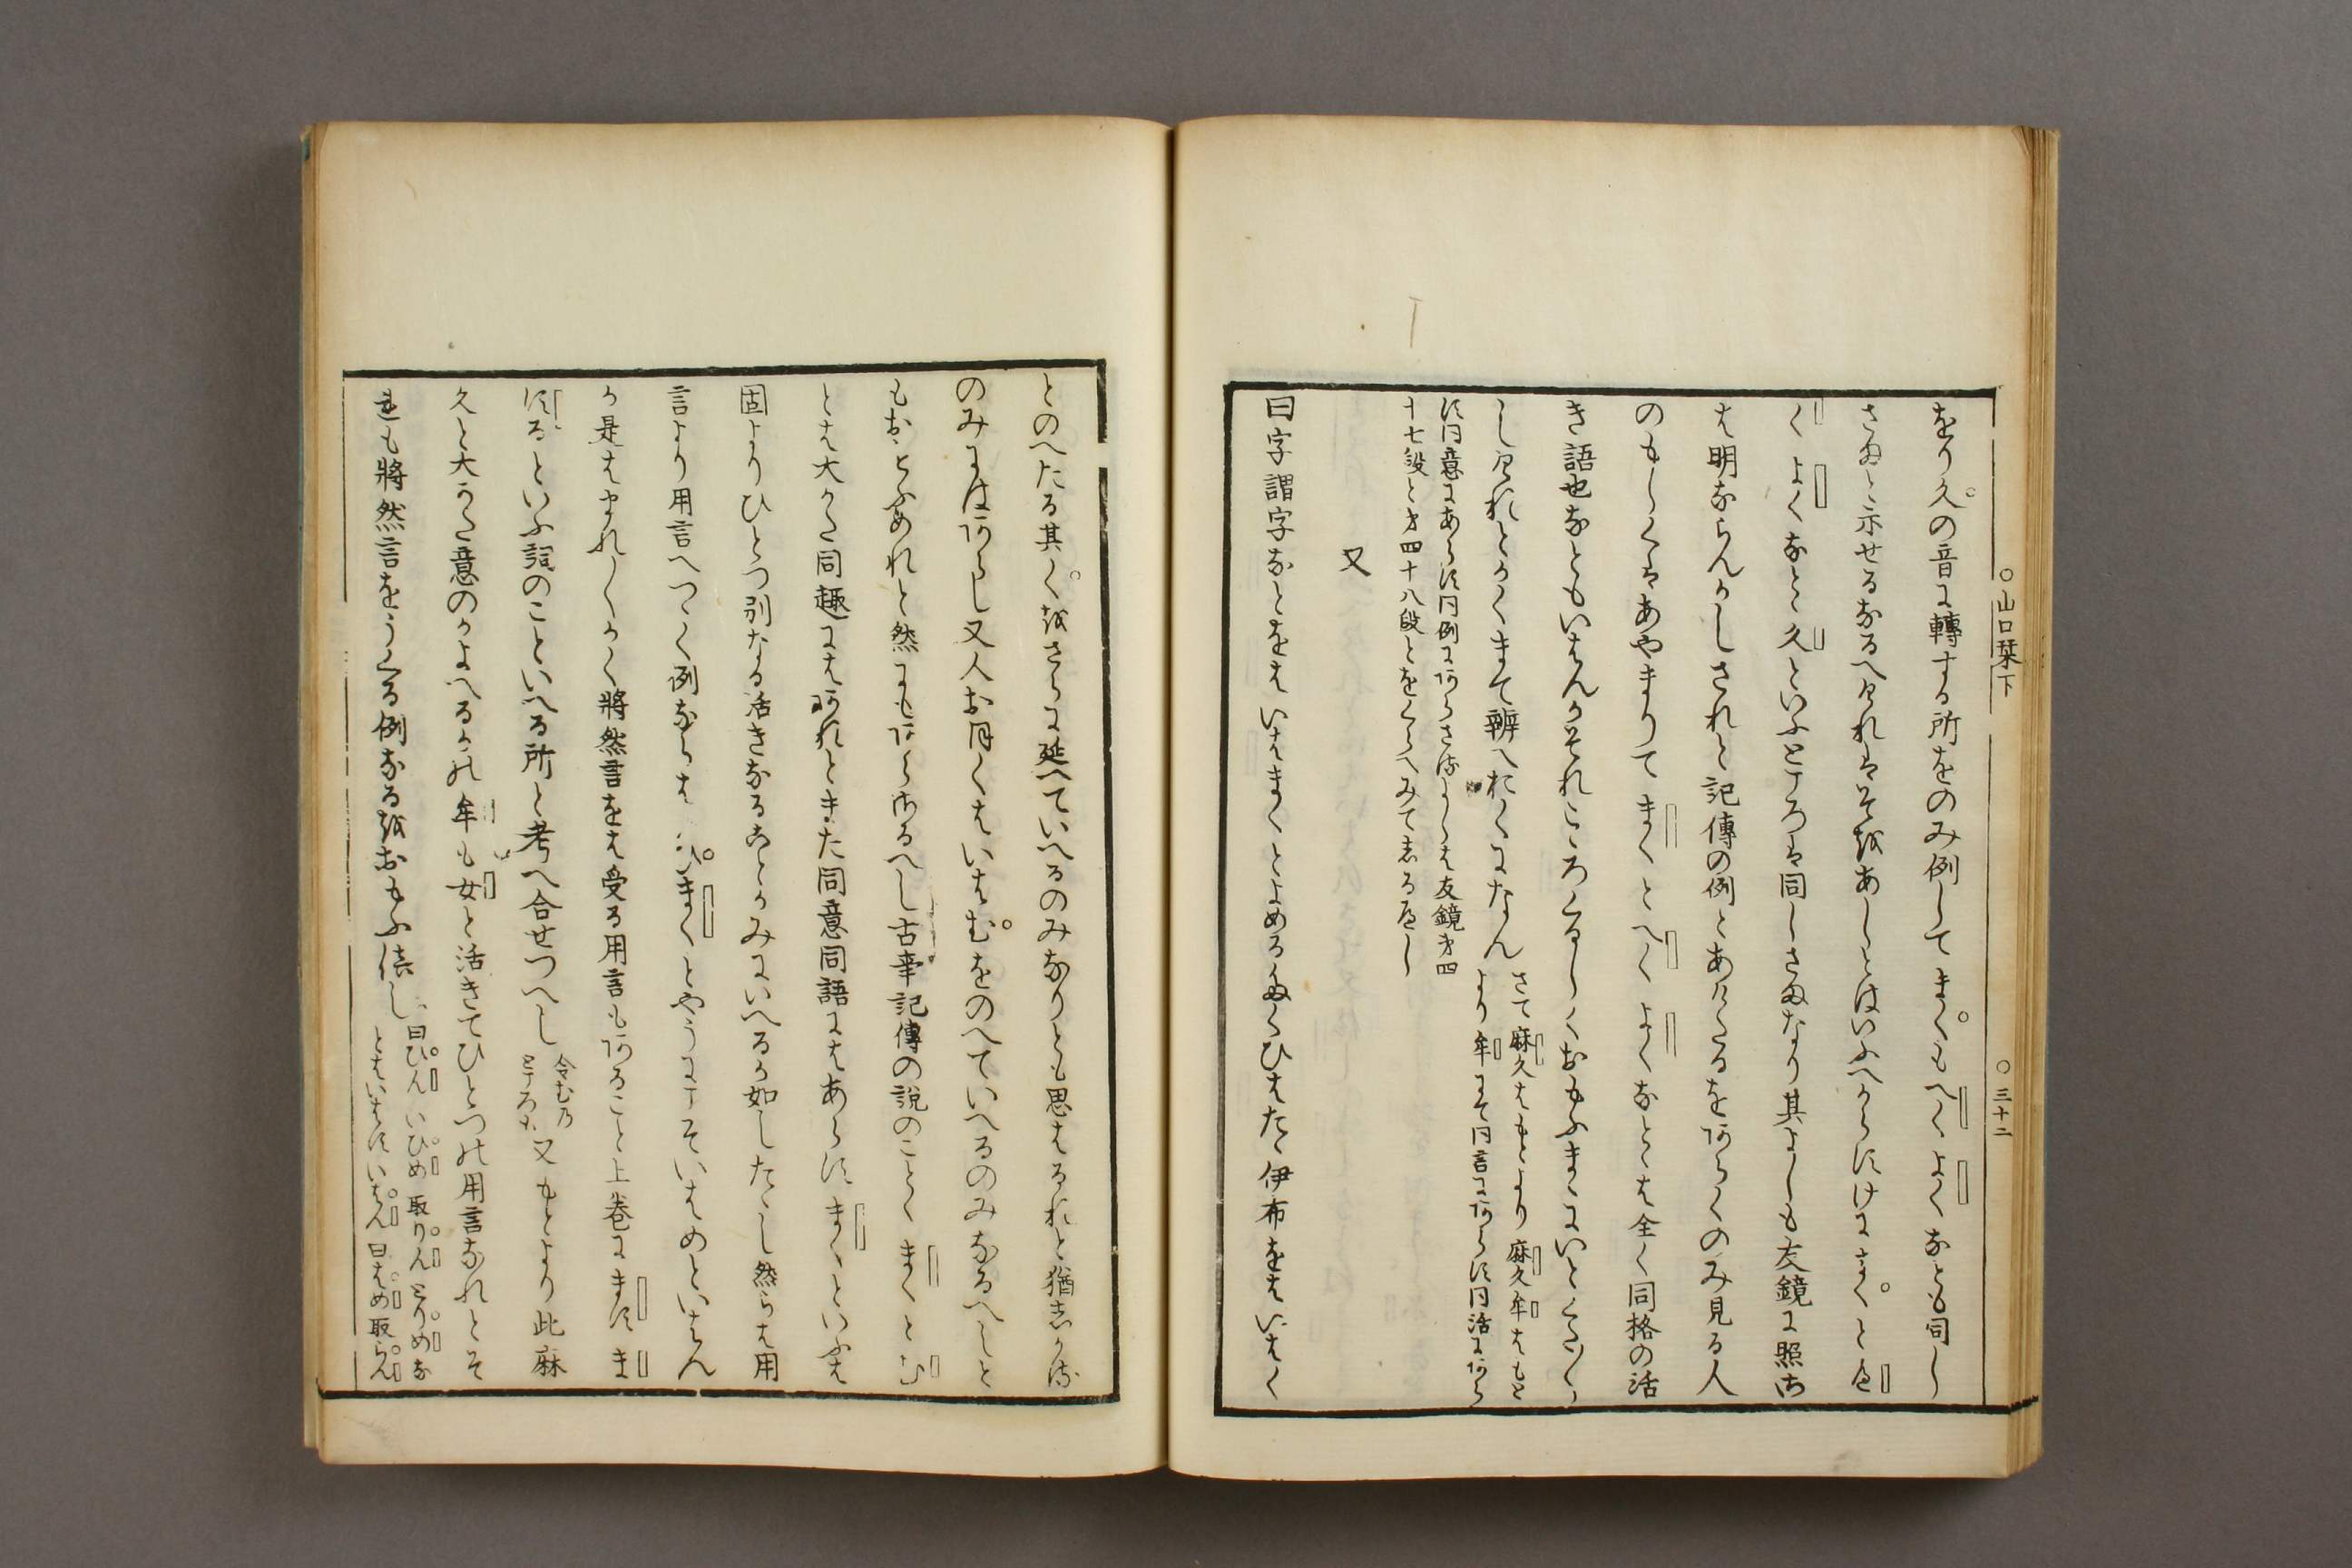 をり久の音に轉する所をのみ例してまくもへくよくなとも同し
さまと示せるなるへけれはそはあしとはいふへからすけにまくとへ
くよくなとゝ久といふところは同しさまなり其よしも友鏡に照さ
は明ならんかしされと記傳の例とあけたるをあらくのみ見る人
のもしくはあやまりてまくとへくよくなとゝは全く同格の活
き語也なともいはんかそれこゝろくるしくおもふまゝにいとくたくたか
しけれとかくまて辨へおくになん
さて麻久はもとより麻久牟はもと
より牟にて同言にあらす同活にあら
す同意にあらす同例にあらさるよしは友鏡才四
十七段と才四十八段とをくらへみてしるへし
又
曰字謂字なとをはいはまくとよめるたくひはたゝ伊布をはいはく
とのへたる其くをさらに延へていへるのみなりとも思はるれと猶しかる
のみにはあらし又人お月くはいはむをのへていへるのみなるへしと
もおもふめれと然にもあらさるへし古事記傳の説のことくまくとむ
とは大かた同趣にはあれとまた同意同語にはあらすまくといふは
固よりひとつ別なる活きなることかみにいへるか如したゝし然らは用
言より用言へつゝく例ならはいひまくとやうにこそいはめといはん
か是はまれしくかく將然言をは受る用言もあること上巻にまほしま
ほるといふ詞のこといへる所と考へ合せつへし
令むの
ところ也
又もとより此麻
久と大かた意のかよへるかの牟も女と活きてひとつの用言なれとそ
れも將然言をうくる例なるをおもふへし
曰ひんいひめ取りんとりめな
とはいはすいはん曰はめ取らん
○山口栞下
○三十二